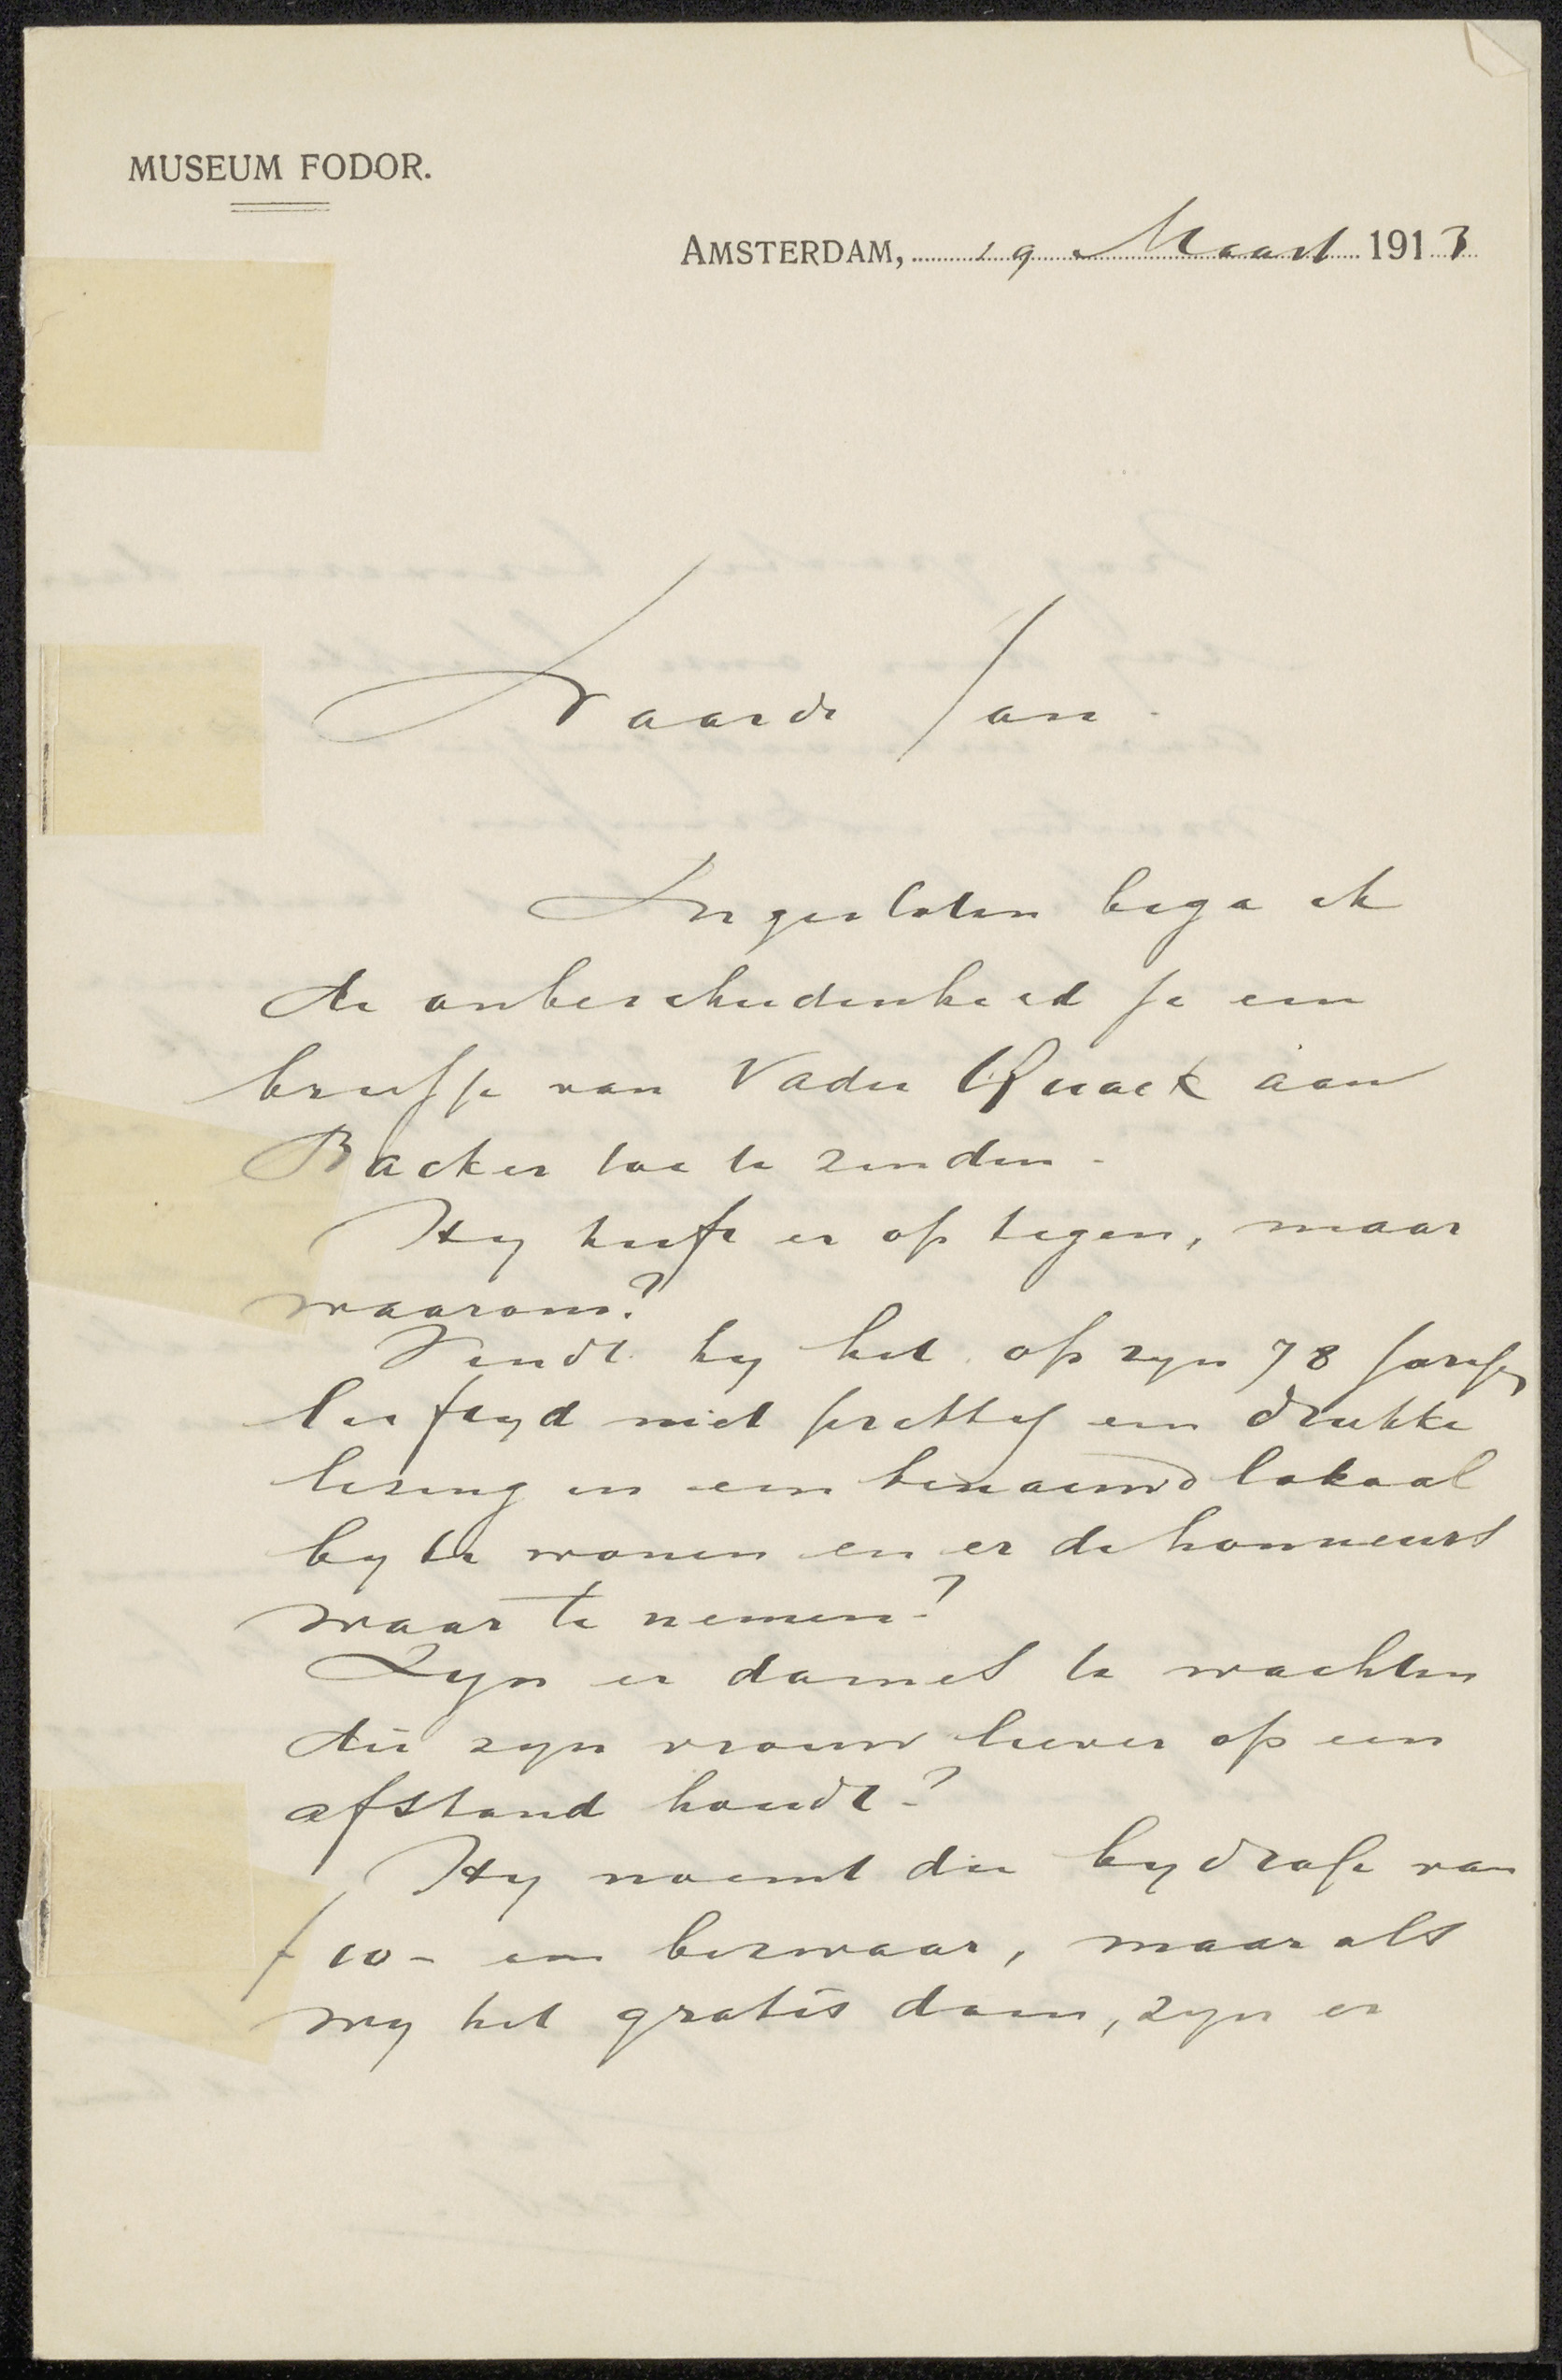 MUSEUM FODOR.
AMSTERDAM, 19 Maart 1913
Waarde Jan.
Ingesloten bega ik
de onbescheidenheid je een
briefje van Vader Quack aan
Backer toe te zenden.
Hy heeft er op tegen, maar
waarom?
Vindt hy het op zyn 78 jarige
leeftyd niet prettig een drukke
lezing in een benauwd lokaal
by te wonen en er de honneurs
waar te nemen?
Zyn er dames te wachten
die zyn vrouw liever op een
afstand houdt?
Hy noemt die bydrage van
f 10 - een bezwaar, maar als
wy het gratis doen, zyn er